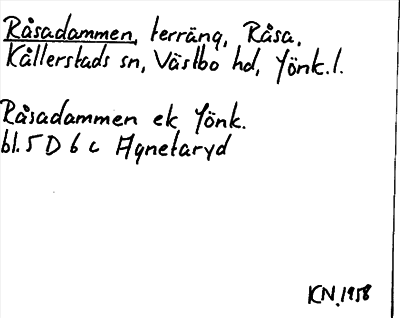 Råsadammen, terräng, Råsa,
Kållerstads sn, Västbo hd, Jönk.l.
Råsadammen ek Jönk.
bl. 5 D 6 c Agnetaryd
KN. 1958